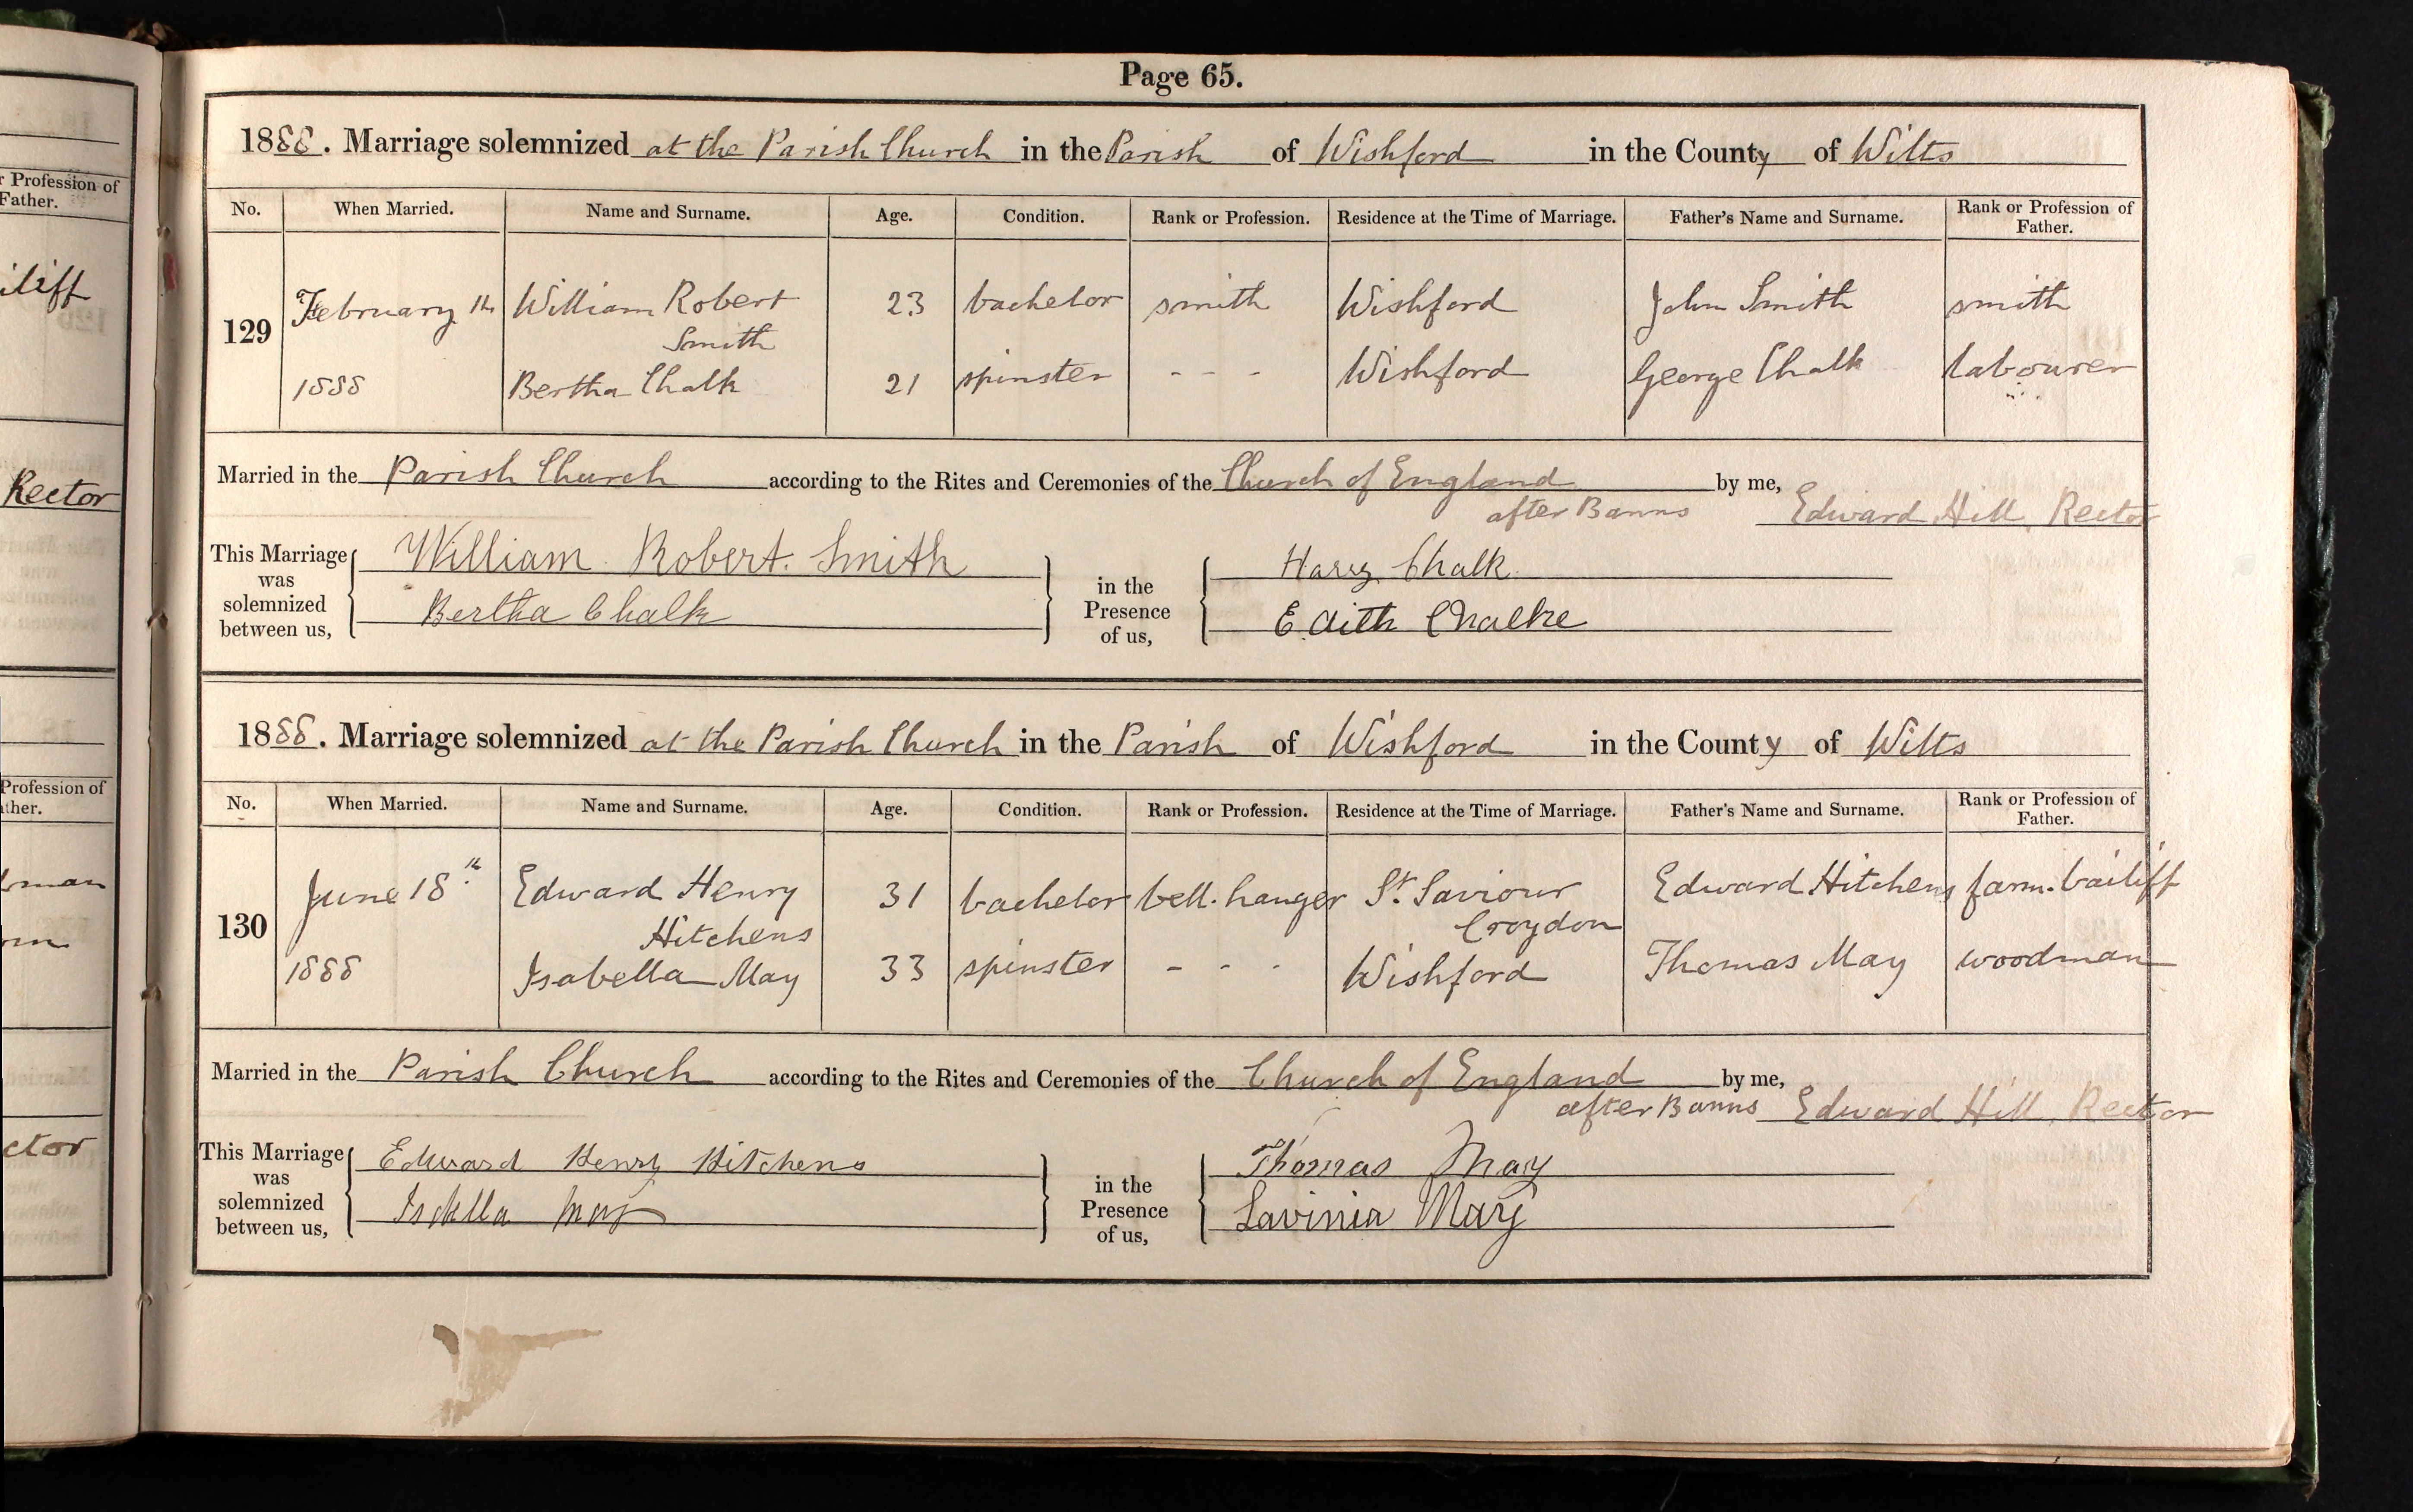 Page 65.
r Profession of
Father.
iliff
Rector
Profession of
ther.
ctor
1888. Marriage solemnized at the Parish Church in the Parish of Wishford in the County of Wilts
No. When Married. Name and Surname. Age. Condition. Rank or Profession. Residence at the Time of Marriage. Father's Name and Surname. Rank or Profession of Father.
129 February William Robert Smith 23 bachelor smith Wishford John Smith smith
1888 Bertha Chalk 21 spinster - - - Wishford George Chalk labourer
Married in the Parish Church according to the Rites and Ceremonies of the Church of England by me,
after Banns Edward Hill, Rector
This Marriage was solemnized between us, William Robert Smith in the Presence of us, Harry Chalk
Bertha Chalk Edith Chalke
1888. Marriage solemnized at the Parish Church in the Parish of Wishford in the County of Wilts
No. When Married. Name and Surname. Age. Condition. Rank or Profession. Residence at the Time of Marriage. Father's Name and Surname. Rank or Profession of Father.
130 June 18th Edward Henry Hitchens 31 bachelor bell-hanger St. Saviour Croydon Edward Hitchens farm-bailiff
1888 Isabella May 33 spinster - - - Wishford Thomas May woodman
Married in the Parish Church according to the Rites and Ceremonies of the Church of England by me,
after Banns Edward Hill, Rector
This Marriage was solemnized between us, Edward Henry Hitchens in the Presence of us, Thomas May
Isabella May Lavinia May